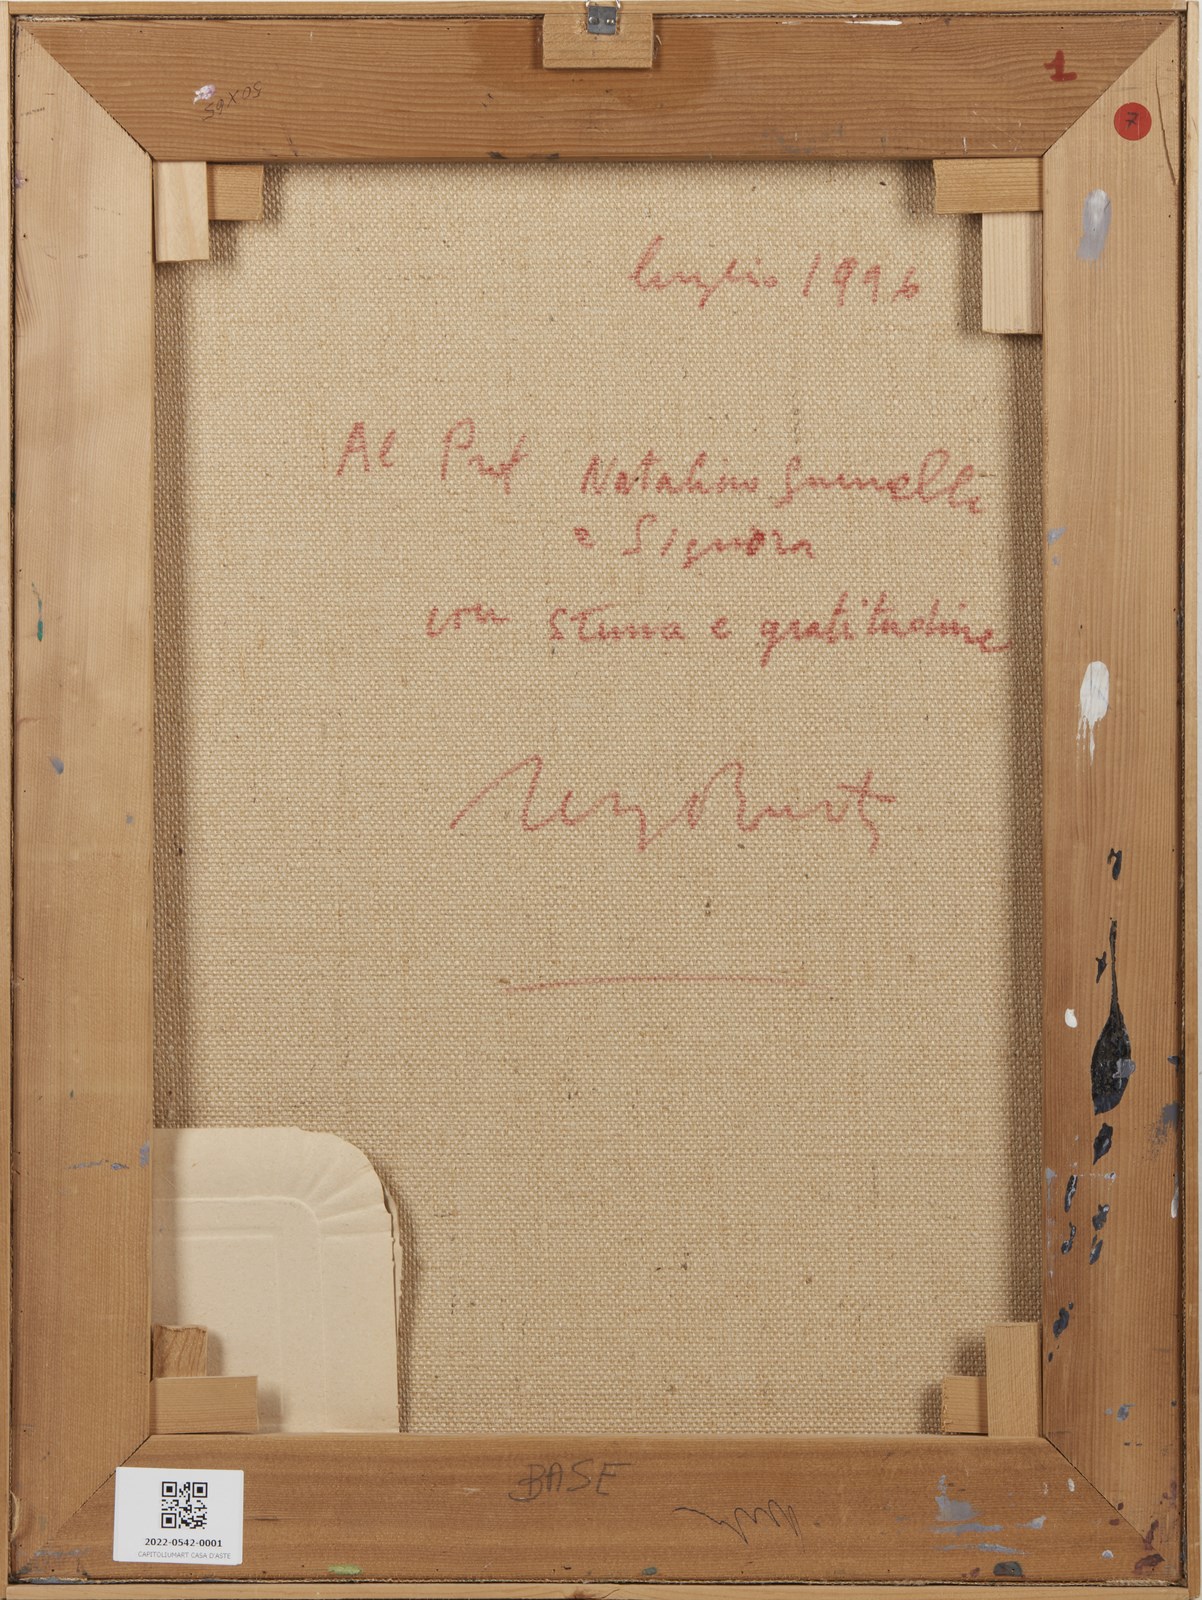 1
7
50x65
luglio 1996
Al Prof Natalino
e Signora
con stima e gratitudine
BASE
2022-0542-0001
CAPITOLIUMART CASA D'ASTE